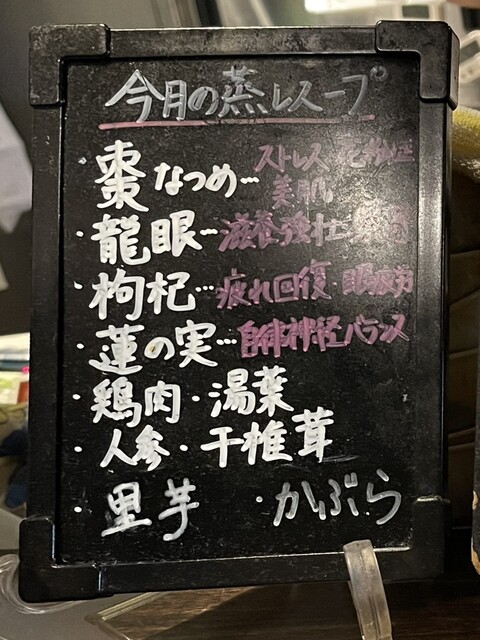 今月の蒸しスープ
・棗 なつめ…ストレス
美肌
・龍眼…滋養強壮
・枸杞…疲れ回復・眼疲労
・蓮の実…自律神経バランス
・鶏肉・湯葉
・人参・干椎茸
・里芋 ・かぶら